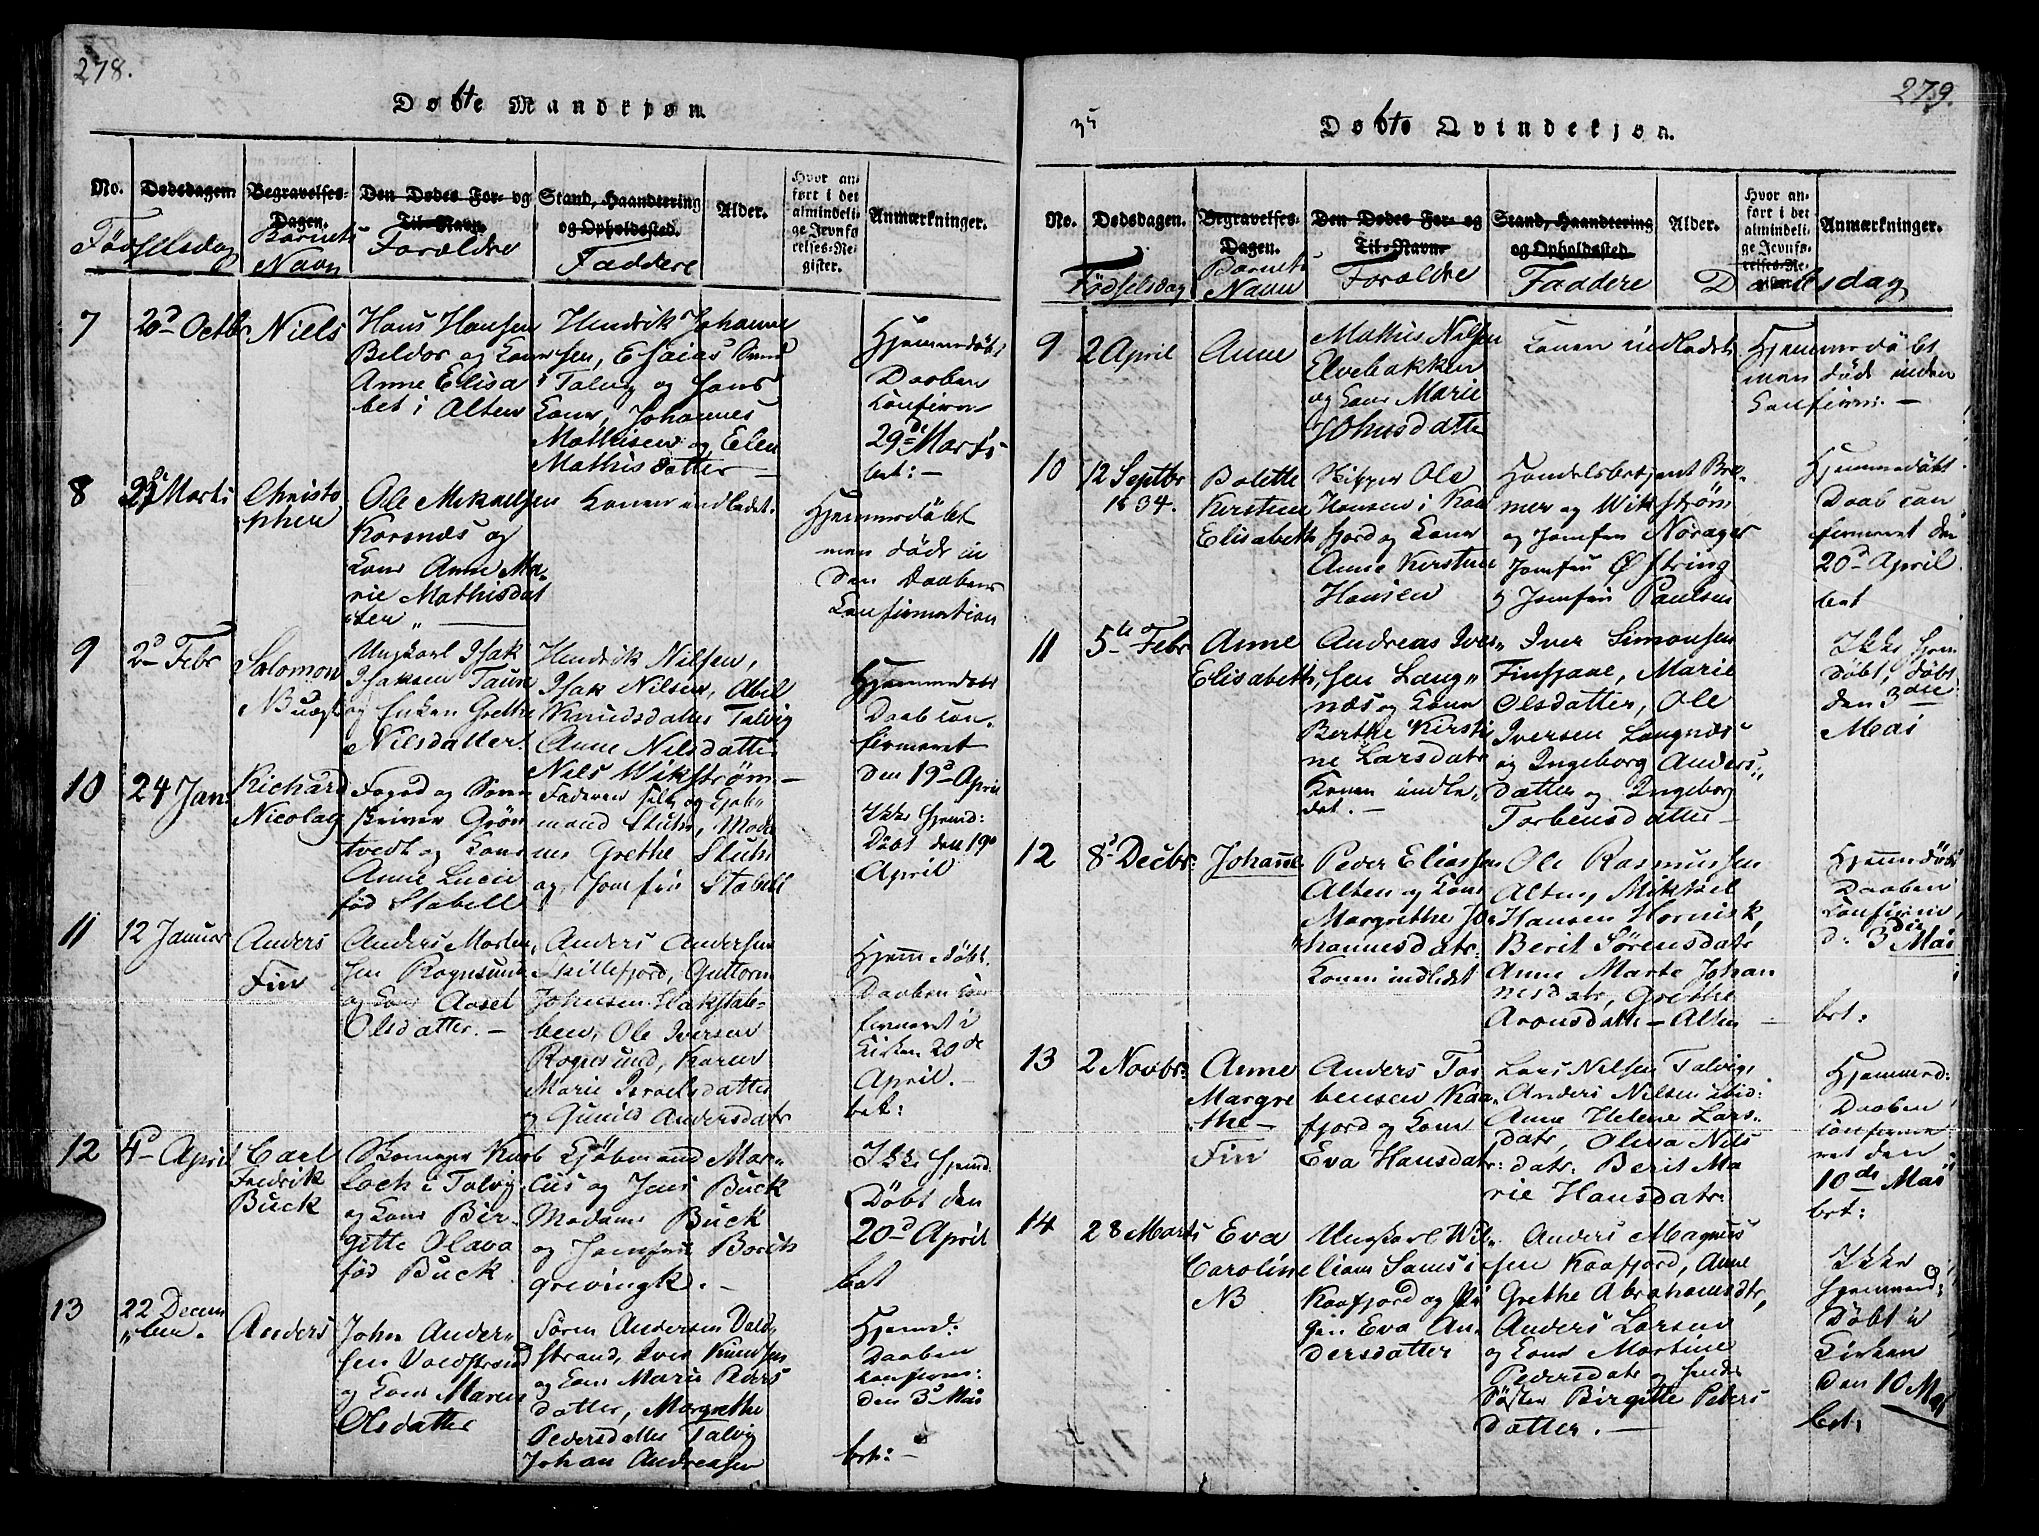 278.
Døbte Mandkjøn.
No.
Dødsdagen
Begravelses-
Dagen.
Den Dødes For- og
Til-Navn.
Stand, Haandtering
og Opholdssted.
Alder.
Hvor an-
ført i det
almindeli-
ge Jevnfø-
relses-Re-
gister.
Anmærkninger.
Fødselsdag
Barnets
Navn
Forældre
Faddere
7
20d Octbr
Niels
Hans Hansen
Beldos og Kone
Anne Elisa
bet i Alten
Hendrik Johanne
sen, Esaias
i Talvig og hans
Kone, Johannes
Mathisen og Elen
Mathisdatter —
Hjemmedøbt
Daaben
Confirm
29de Marts
bet: —
8
Marts
Christo
pher
Ole Mikkelsen
Korsnæs og
Kone Anne Ma-
rie Mathisdat
ter „ —
Konen indledet.
Hjemmedøbt
men døde in
den Daabens
Confirmation
9
2d Febr
Salomon
Ungkarl Isak
Isaksen
og Enken Grethe
Nilsdatter.
Hendrik Nilsen,
Isak Nilsen, Abil
Knudsdatter Talvig
Anne Nilsdatter
Nils Wikstrøm —
Hjemmedøbt
Daab con-
firmeret
den 19d April
10
24 Jan:
Richard
Nicolay
Foged og Soren
skriver Grøn
tvedt og Kone
Anne Lucie
fød Stabell
Faderen selv og Kjøb„
mand Stuhr, Mada
me Grethe Stuhr
og Jomfru Stabell
Ikke Hjemd:
Døbt den 19d
April
11
12 Januar
Anders
Fin
Anders Morten,
sen Rognsund
og Kone Aasel
Olsdatter. —
Anders Andersen
Skillefjord, Guttorm
Johnsen Hakstab-
ben, Ole Iversen
Rognsund, Karen
Marie Israelsdatter
og Gunild Andersdatr
Hjemmedøbt.
Daaben Con
firmeret i
Kirken 20de
April. —
bet:
12
4d April
Carl
Fredrik
Buck
Loch i Talvig
og Kone Bir-
gitte Olava
fød Buck.
Kjøbmand Mar-
cus og Jens Buck
Madame Buck
og Jomfru
Grevingk. —
Ikke Hjemd:
Døbt den
20d April
bet
13
22 Decem
„ber.
Anders
John Ander„
sen Voldstrand
og Kone Maren
Olsdatter
Søren Andersen Vold„
strand, Iver Knudsen
og Kone Marie Peders
datter, Margrethe
Pedersdatter Talvig
Johan Andreasen
Hjemd:
Daaben
Confirm:
den 3d Mai
bet: —
279.
35
Døbte Qvindekjøn.
No.
Dødsdagen.
Begravelses-
Dagen.
Den Dødes For- og
Til-Navn.
Stand, Haandtering
og Opholdssted.
Alder.
Hvor an-
ført i det
almindeli-
ge Jevnfø-
relses-Re-
gister.
Anmærkninger.
Fødselsdag
Barnets
Navn
Forældre
Faddere
Daabsdag
9
2 April
Anne
Mathis Nilsen
Elvebakken
og Kone Marie
Johnsdatter
Konen indledet
Hjemmedøbt
men død inden
Confirm. —
10
12 Septbr
1834.
Bolette
Kirstine
Elisabeth
Skipper Ole
Hansen i Kaa
fjord og Kone
Anne Kirstine
Hansen
Handelsbetjent Bre-
mer og Wikstrøm
og Jomfru Norager
Jomfru Østring
og Jomfru Paulsen
Hjemmedøbt
Daab con
firmeret den
20d April
bet
11
5te Febr
Anne
Elisabeth,
Andreas Iver„
sen Lang„
næs og Kone
Berthe Kirsti
ne Larsdatr
Konen indle„
det. —
Iver Simonsen
Finsjave, Marie
Olsdatter, Ole
Iversen Langnæs
og Ingeborg Anders„
datter og Ingeborg
Torbensdatter —
Ikke Hjem
døbt, døbt
den 3die
Mai
12
8d Decbr:
Johanne
Peder Eliassen
Alten og Kone
Margrethe Jo„
„hannesdatr.
Konen indledet
Ole Rasmussen
Alten, Mikkel
Hansen Hornisk,
Berit Sørensdatr
Anne Marte Johan
nesdatr, Grethe
Aronsdatter — Alten
Hjemmedøbt
Daaben
Confirm
d: 3die Mai
bet:
13
2 Novbr:
Anne
Margre
the —
Fin
Anders Tor
bensen Kaa„
fjord og Kone
Eva Hansdatr:
Lars Nilsen Talvig,
Anders Nilsen ibid:
Anne Helene Lars„
datr, Oliva Nils
datr: Berit Ma
rie Hansdatr
Hjemmed:
Daaben
confirme
ret den
10de Mai
bet:
14
28 Marts
Eva
Caroline
NB
Ungkarl Wil„
liam Sams i
Kaafjord og Pi
gen Eva An„
dersdatter
Anders Magnus
sen Kaafjord, Anne
Grethe Abrahamsdtr,
Anders Larsen
og Kone Martine
Pedersdatr og hendes
Søster Birgitte Peders
datter. —
Ikke
Hjemmed:
Døbt i
Kirken
den 10 Mai
bet: